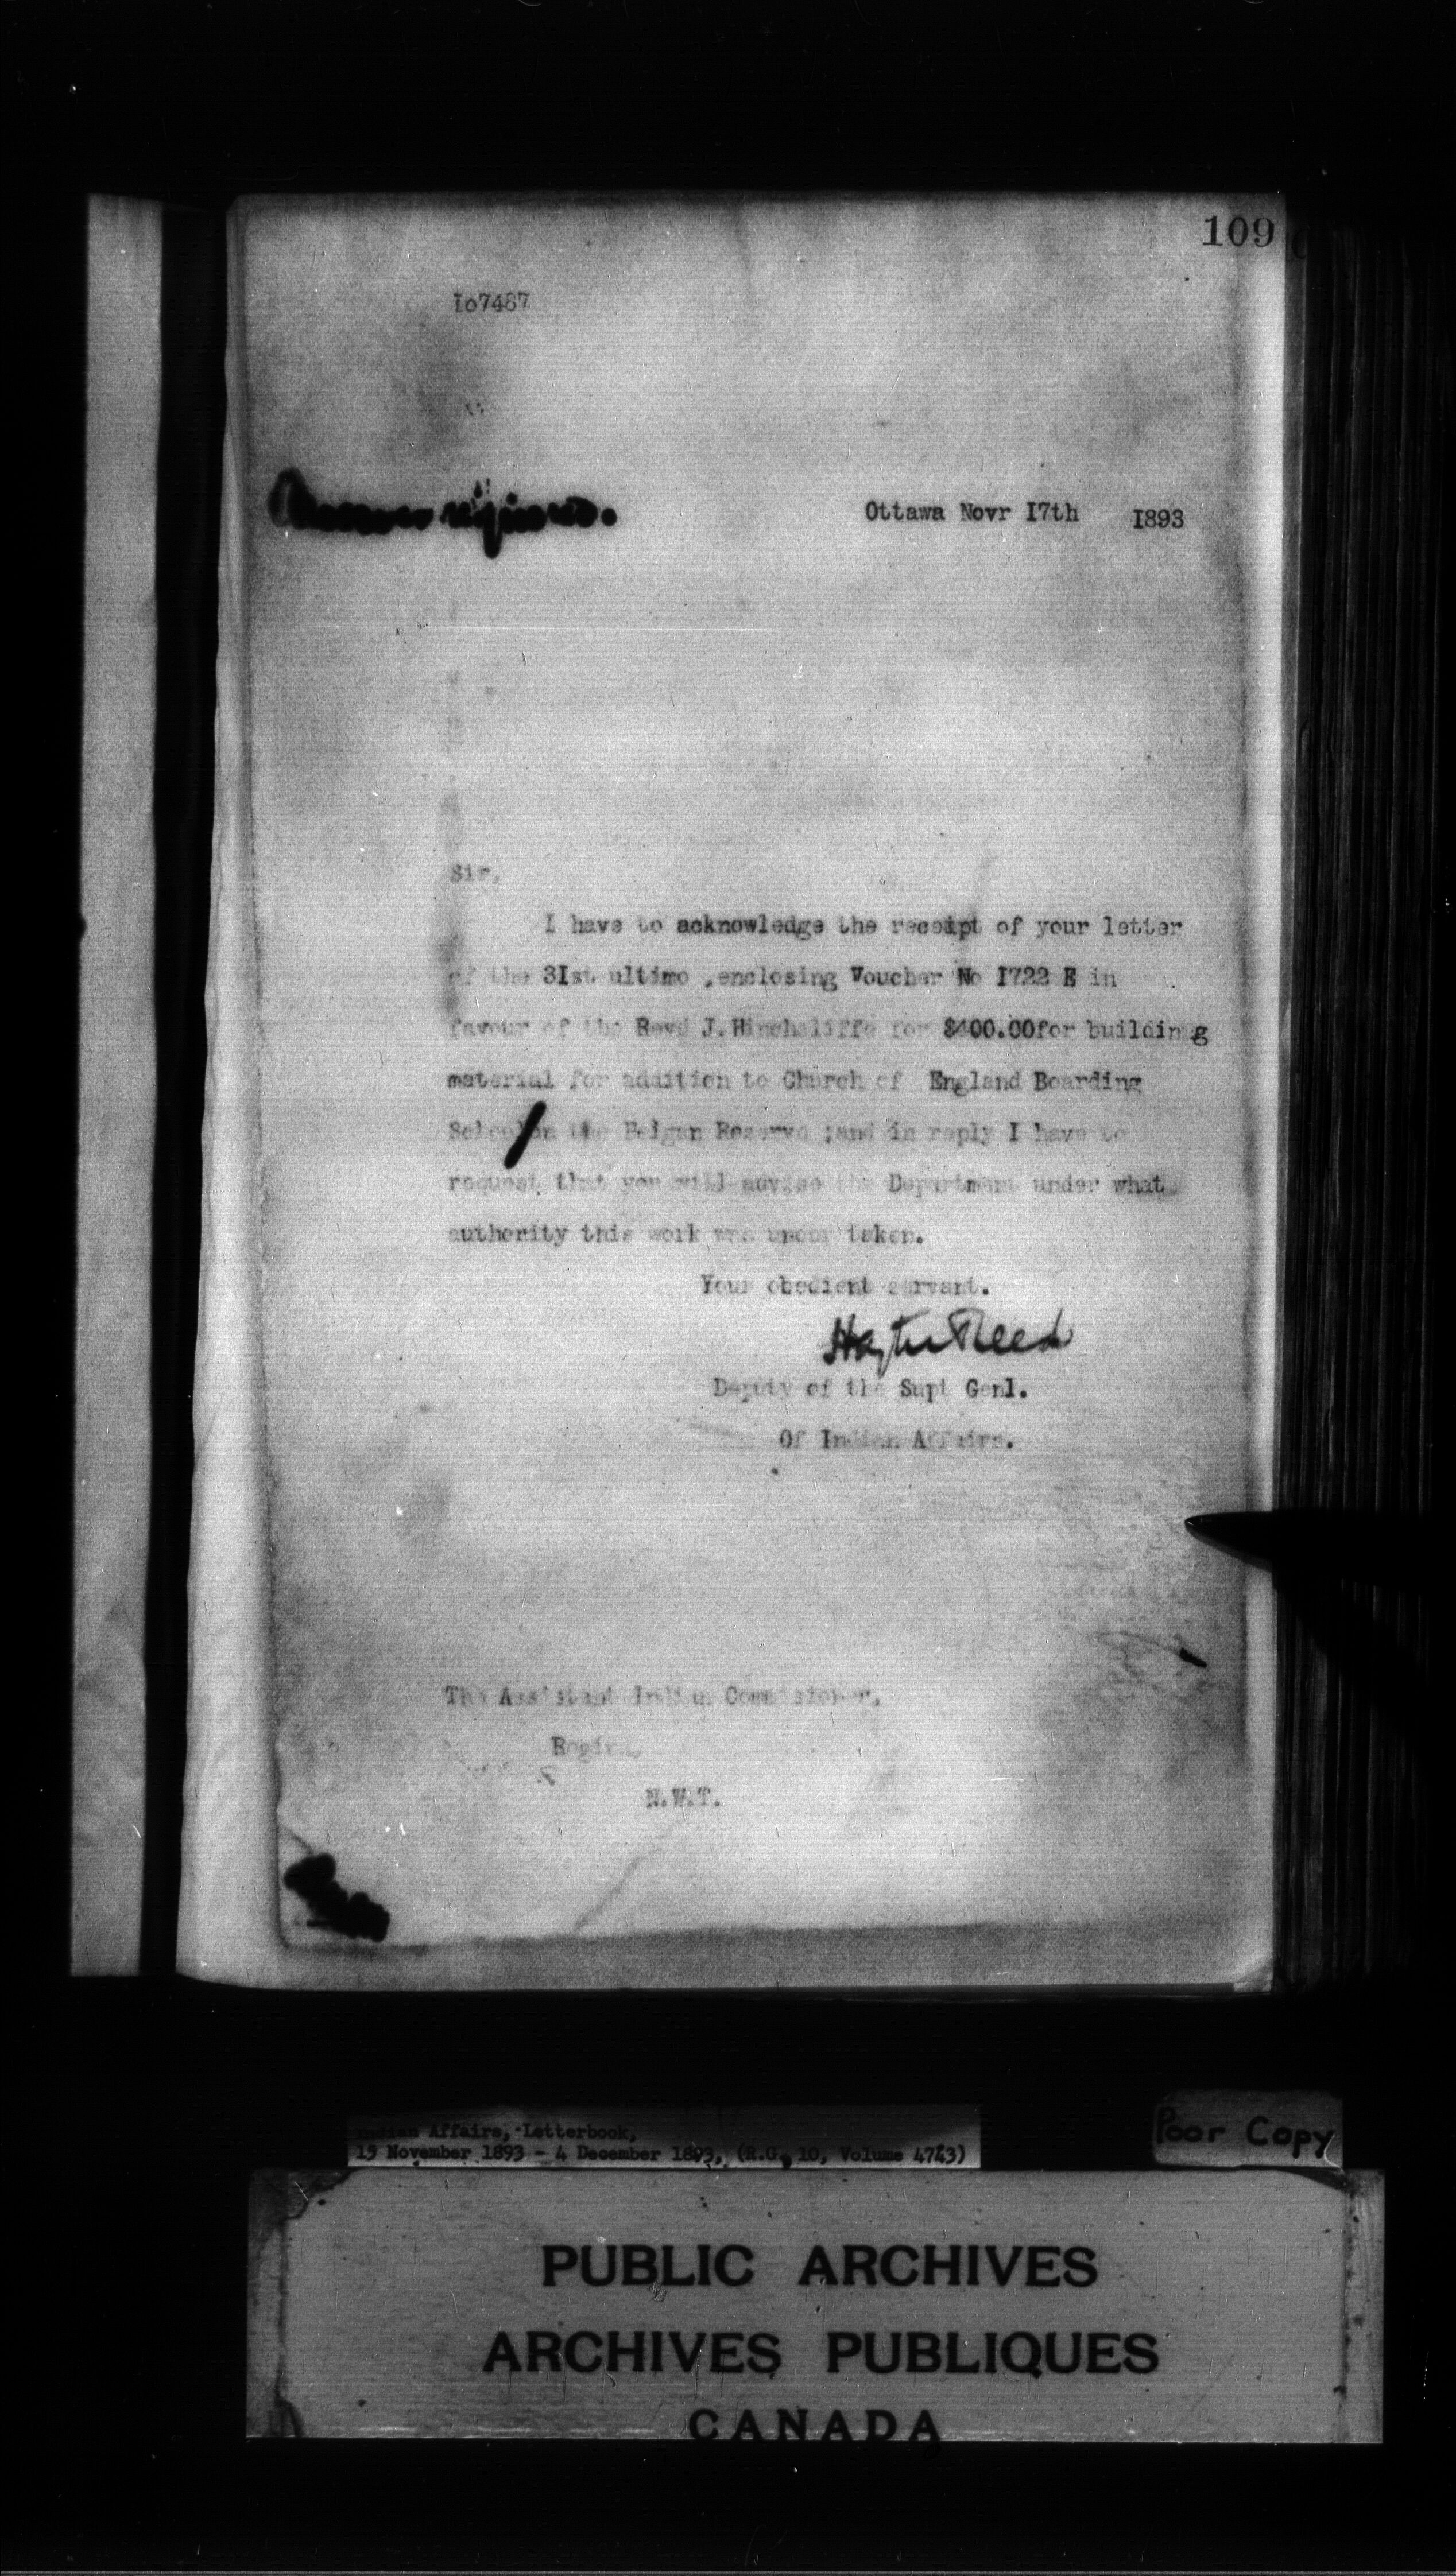 109
Io7487
Answer required.
Ottawa Novr I7th I893
Sir,
I have to acknowledge the receipt of your letter
of the 3Ist ultimo ,enclosing Voucher No I722 E in
favour of the Revd J.Hinchcliffe for $400.00for building
material for addition to Church of England Boarding
School/on the Peigan Reserve ;and in reply I have to
request that you will advise the Department under what
authority this work was under taken.
Your obedient servant.
Hayter Reed
Deputy of the Supt Genl.
Of Indian Affairs.
The Assistant Indian Commissioner,
Regina,
N.W.T.
Indian Affairs, Letterbook,
15 November 1893 - 4 December 1893, (R.G. 10, Volume 4743)
Poor Copy
PUBLIC ARCHIVES
ARCHIVES PUBLIQUES
CANADA